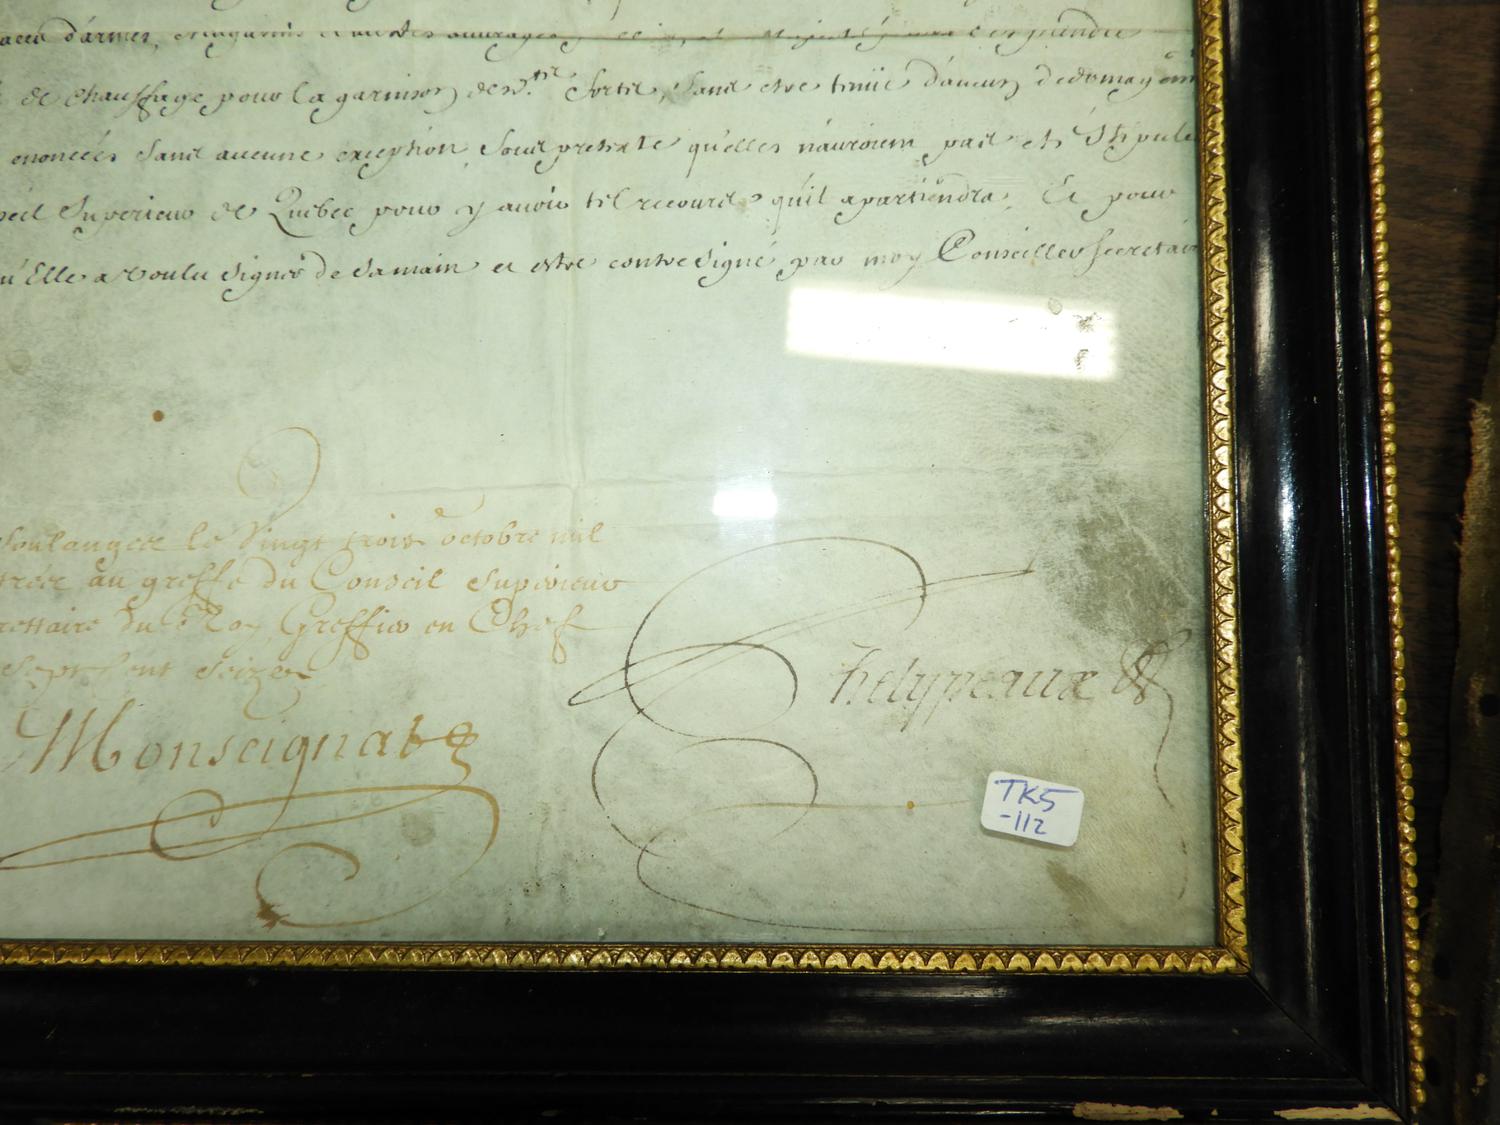 d'armes, Magasins et autres ouvrages
de chauffage pour la garnison desd. fortis, sans estre tenüe d'aucun dedomagem
enoncées sans aucune exception, sous pretexte qu'elles n'auroient pas et Stipule
Superieur de Québec pour y avoir tel recours qu'il apartiendra. Et pour
qu'Elle a voulu signer de sa main et estre contresigné par moy Conseiller secretair
soulanges le Vingt trois octobre mil
au greffe du Conseil Supérieur
du Roy Greffier en Chef
Sept Cent Seize
Monseignat
Phelypeaux
TK5
-112